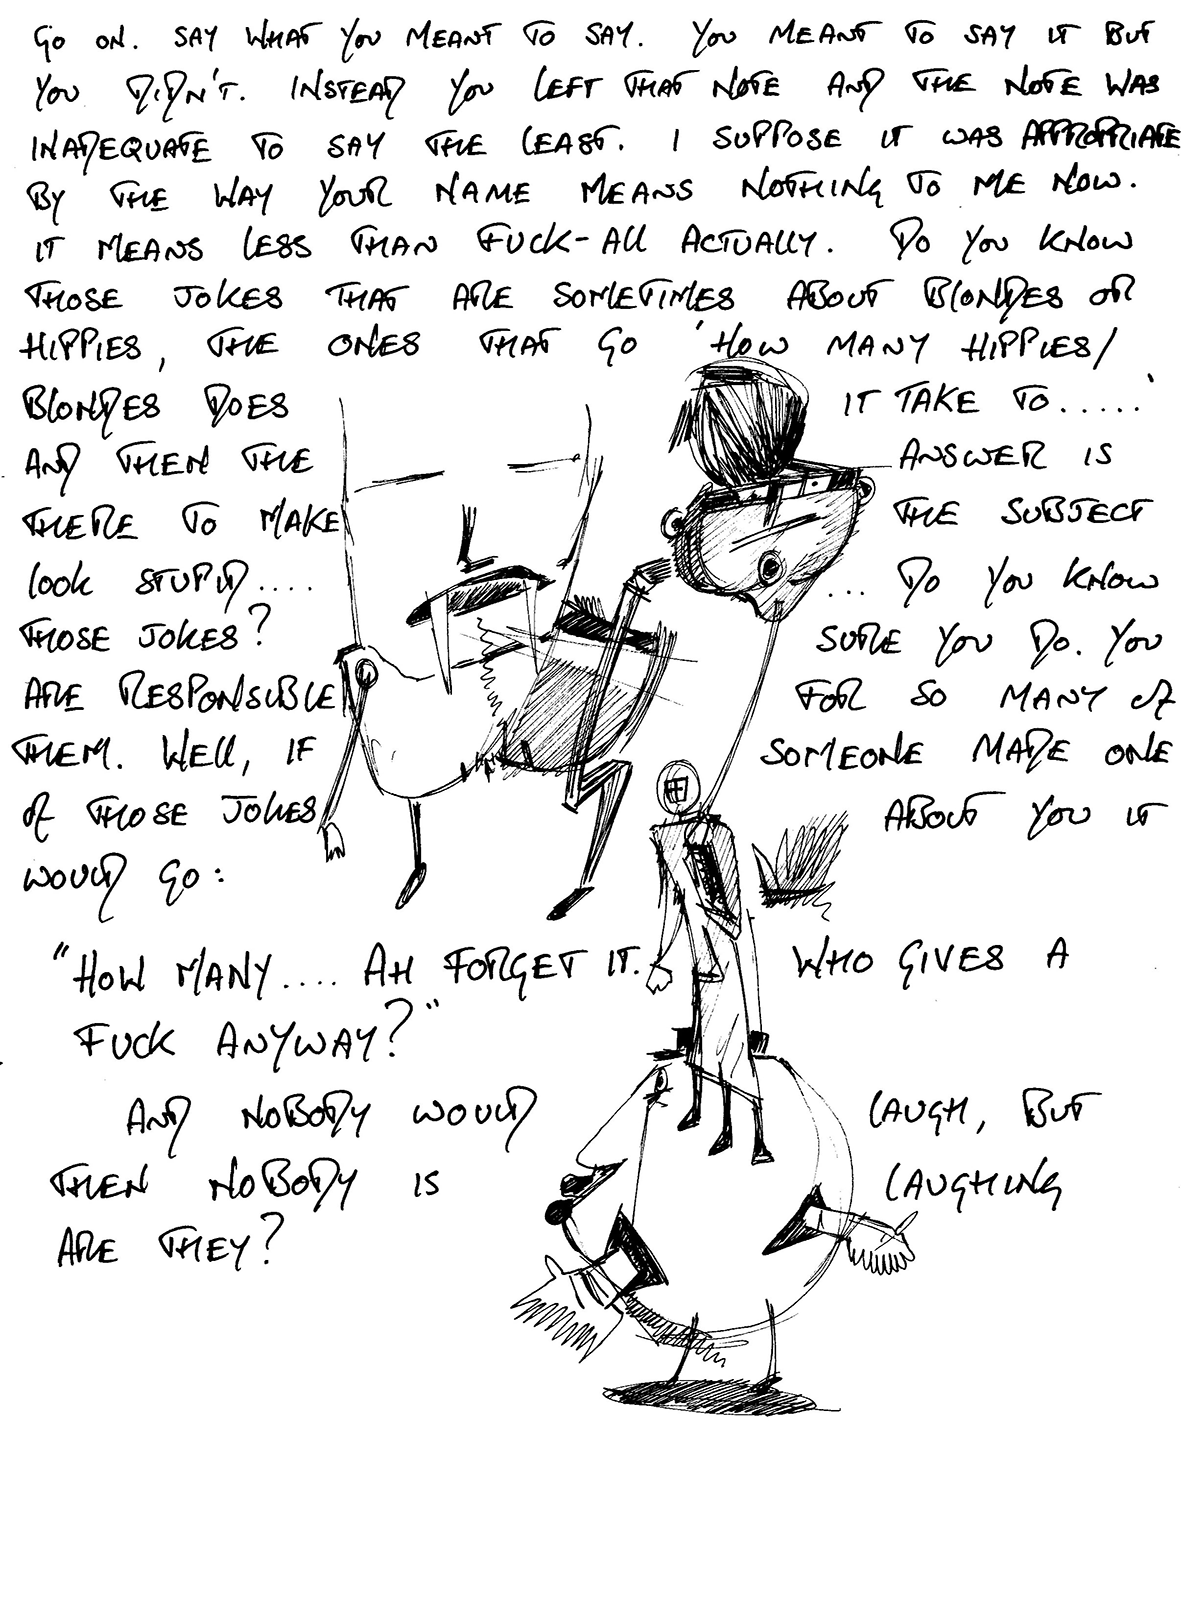 GO ON. SAY WHAT YOU MEANT TO SAY. YOU MEANT TO SAY IT BUT
YOU DIDN'T. INSTEAD YOU LEFT THAT NOTE AND THE NOTE WAS
INADEQUATE TO SAY THE LEAST. I SUPPOSE IT WAS APPROPRIATE
BY THE WAY YOUR NAME MEANS NOTHING TO ME NOW.
IT MEANS LESS THAN FUCK-ALL ACTUALLY. DO YOU KNOW
THOSE JOKES THAT ARE SOMETIMES ABOUT BLONDES OR
HIPPIES, THE ONES THAT GO 'HOW MANY HIPPIES/
BLONDES DOES IT TAKE TO.....'
AND THEN THE ANSWER IS
THERE TO MAKE THE SUBJECT
LOOK STUPID.... ... DO YOU KNOW
THOSE JOKES? SURE YOU DO. YOU
ARE RESPONSIBLE FOR SO MANY OF
THEM. WELL, IF SOMEONE MADE ONE
OF THOSE JOKES ABOUT YOU IT
WOULD GO:
"HOW MANY.... AH FORGET IT. WHO GIVES A
FUCK ANYWAY?"
AND NOBODY WOULD LAUGH, BUT
THEN NOBODY IS LAUGHING
ARE THEY?